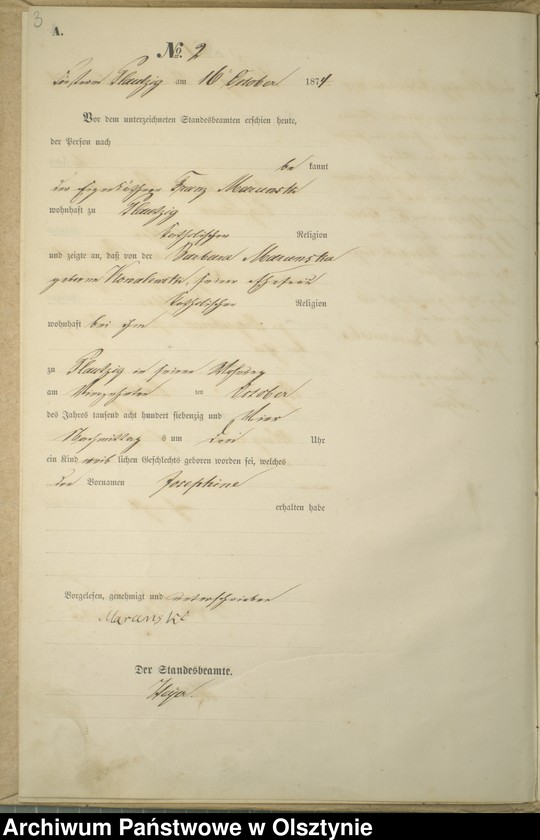 3
A.
No. 2
Plautzig am 16 October 1874.
Vor dem unterzeichneten Standesbeamten erschien heute,
der Person nach
be kannt
der Franz
wohnhaft zu Plautzig
katholischer Religion
und zeigte an, daß von der Barbara
geborne seiner Ehefrau
katholischer Religion
wohnhaft bei ihm
zu Plautzig in seiner Wohnung
am vierzehnten ten October
des Jahres tausend acht hundert siebenzig und vier
Nachmittag s um drei Uhr
ein Kind weib lichen Geschlechts geboren worden sei, welches
den Vornamen Josephine
erhalten habe
Vorgelesen, genehmigt und unterschrieben
Der Standesbeamte.
Archiwum Państwowe w Olsztynie